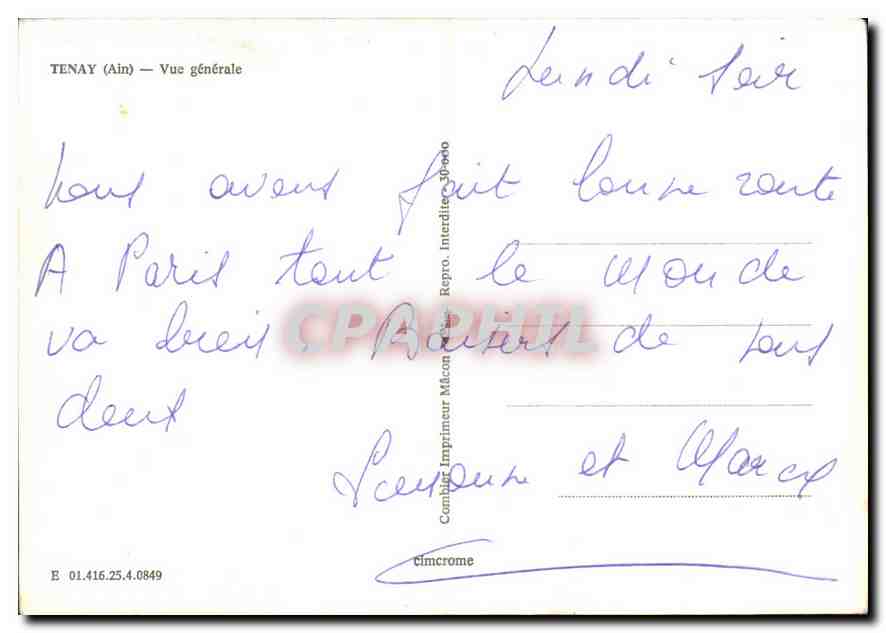 TENAY (Ain) — Vue générale
Lundi soir
Nous avons fait bonne route
A Paris tout le Monde
va bien. Baisers de tous
deux
et Marcel
Combier Imprimeur Mâcon Repro. Interdite - 30-000
CPAPHIL
cimcrome
E 01.416.25.4.0849